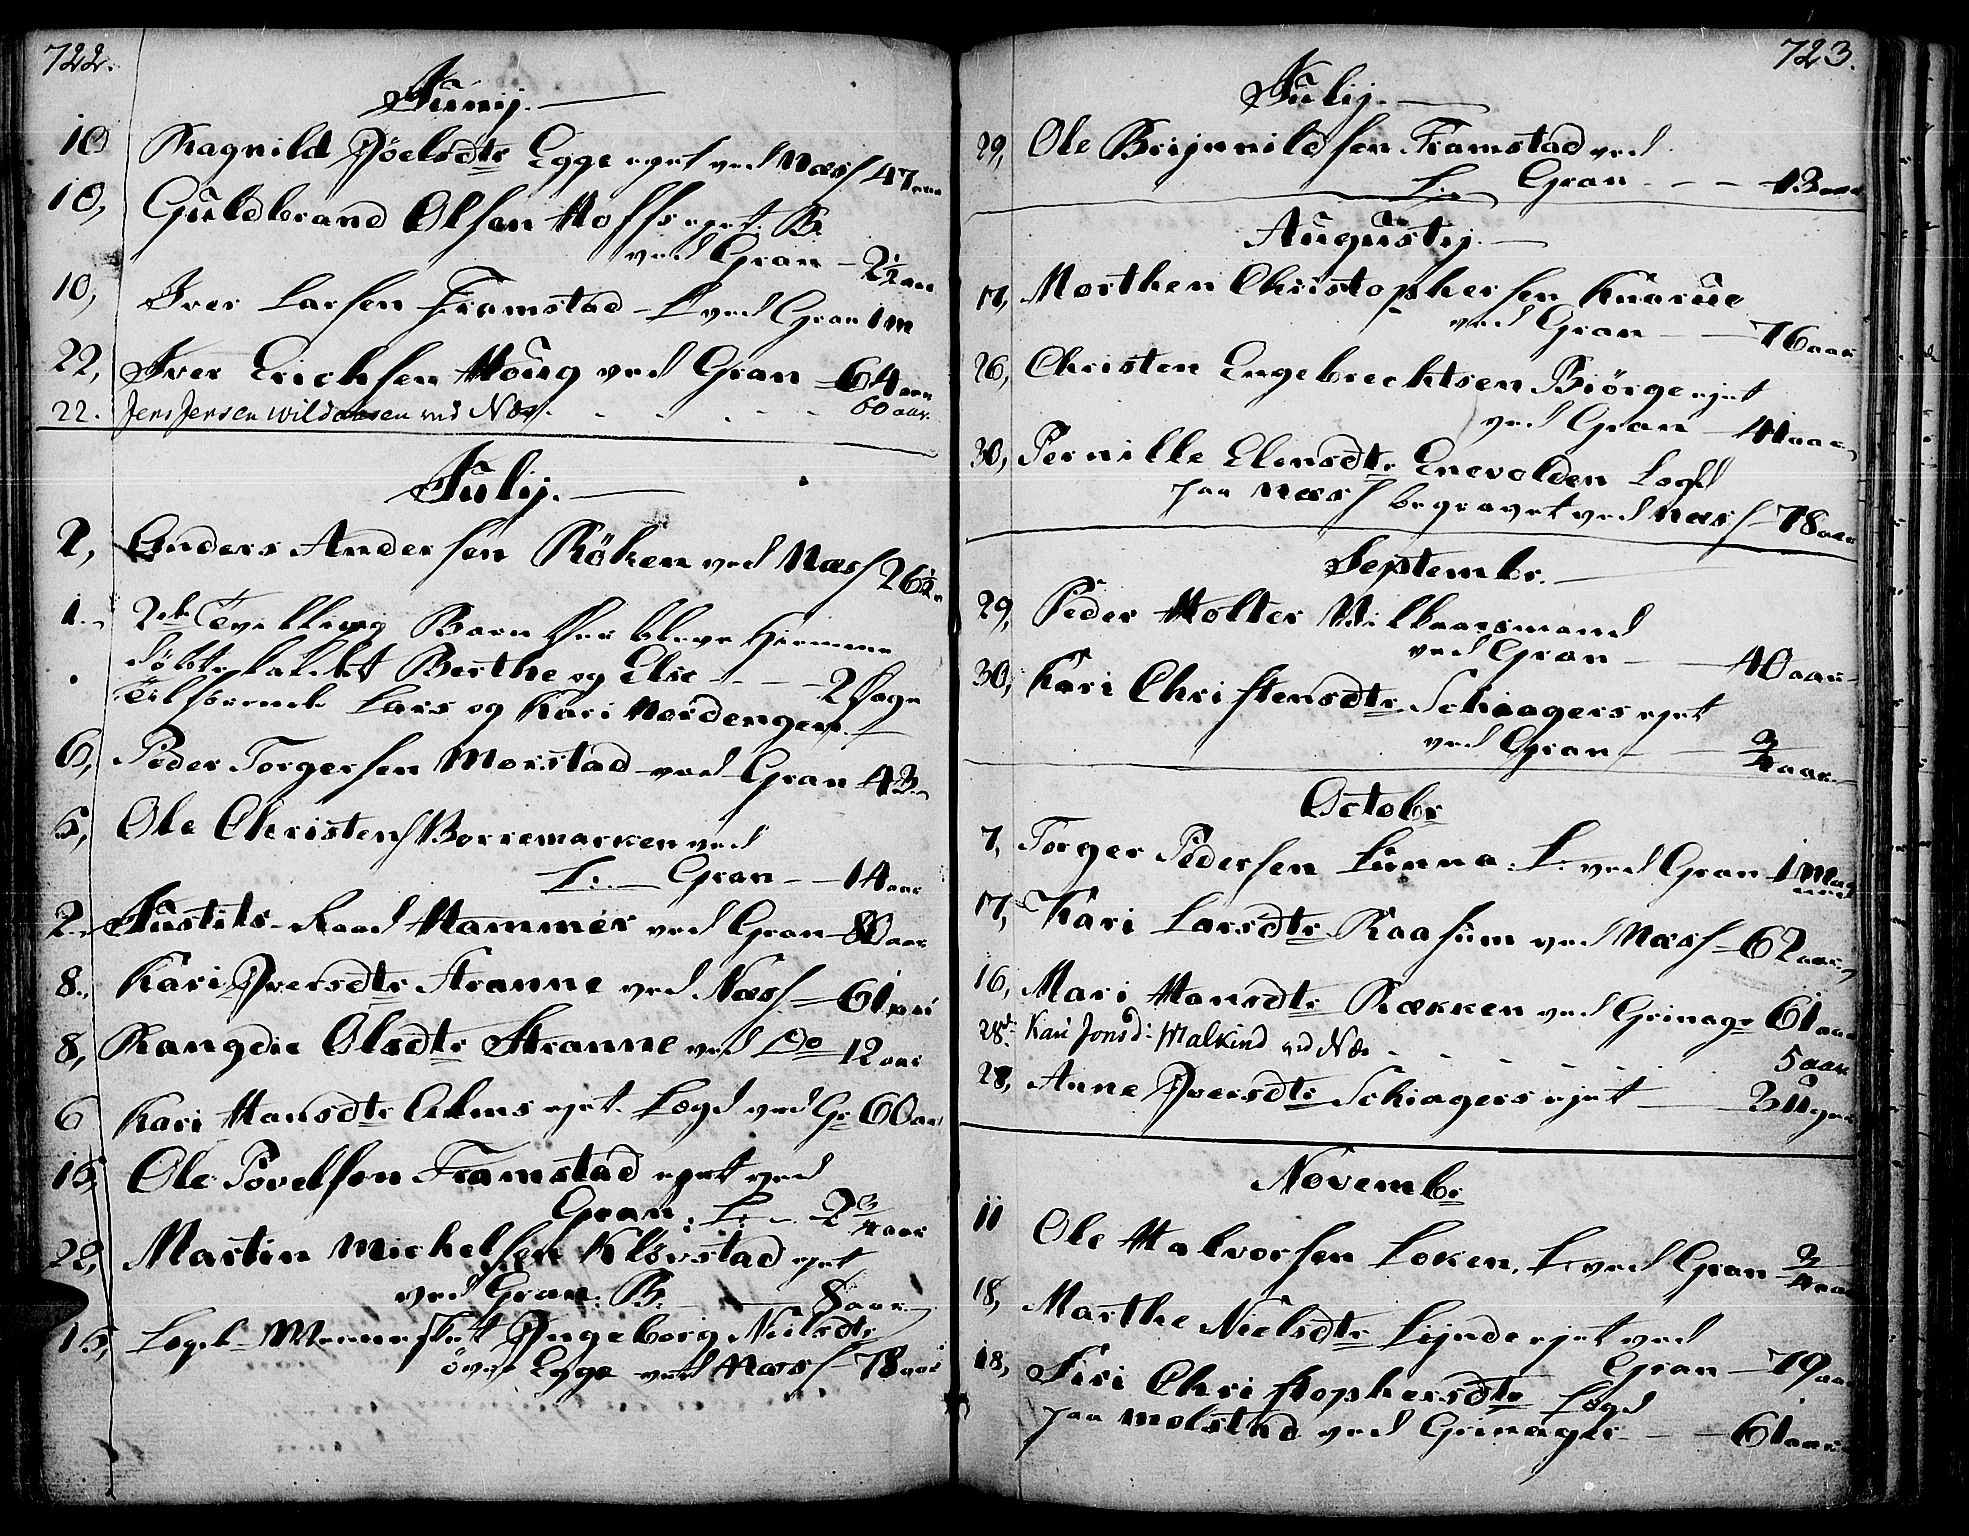 722.
Junij.
10 Ragnild Jöelsdtr Egge ejet ved Næss 47 aar
10, Guldbrand Olsen Hoffs ejet. B.
ved Gran - 2 1/2 aar
10, Iver Larsen Framstad - L ved Gran 1 m
22, Iver Erichsen Houg ved Gran - 64 aar
22. Jens Jensen Wildaasen ved Næs. - - - - 60 aar.
Julij.
2, Anders Andersen Röken ved Næss 26 1/2
1. 2de Tvilling Børn der bleve hjemme
döbte kaldet Berthe og Elic - - 2 Dage
Lars og Kari Nordengen
6, Peder Torgersen Morstad ved Gran 43
5, Ole Christens Borremarken ved
L. Gran - - 14 aar
2. Justits-Raad Hammer ved Gran - 80 aar
8. Kari Iversdtr Stranne ved Næss. - 61 aar
8, Rangdie Olsdtr Stranne ved Do - 12 aar
6 Kari Hansdtr Alms ejet. Lægd ved Gr 60 aar
15, Ole Povelsen Framstad ejet ved
Gran. L. - 2 3/4 aar
22, Martin Michelsen Klövstad ejet
ved Gran. B. 8 aar
15, Lægds Menneske Ingeborg Nielsdtr
över Egge ved Næss - 78 aar
723.
Julij.
29, Ole Brijnnildsen Framstad ved
L. Gran - - - 13 aar
Augustij.
17, Morthen Christophersen Knarue
ved Gran - - 76 aar
26, Christen Engebrechtsen Biörge ejet
ved Gran - 41 aar
30, Pernille Elensdtr Enevolden Lægd
paa Næss begravet ved Næss - 78 aar
Septembr.
29, Peder Holter Vilkaarsmand
ved Gran - - 40 aar
30, Kari Christensdtr Schiagers ejet
ved Gran - - 3/4 aar
Octobr
7, Torger Pedersen Lunna. L. ved Gran 1 Maaned
17, Kari Larsdtr Raasum ved Næss - 62 aar
16, Mari Hansdtr Rækken ved Grinager 61 aar
28d. Kari Jonsd: Malkind ved Næs - - - - 5 aar
28, Anne Iversdtr Schiagers ejet - 3 Uger
Novembr
11 Ole Halvorsen Loken, L. ved Gran 3/4 aar
18, Marthe Nielsdtr Lijnde ejet ved
Gran - 79 aar
18, Siri Christophersdtr Lægd
paa Molstad ved Grinager - - 61 aar